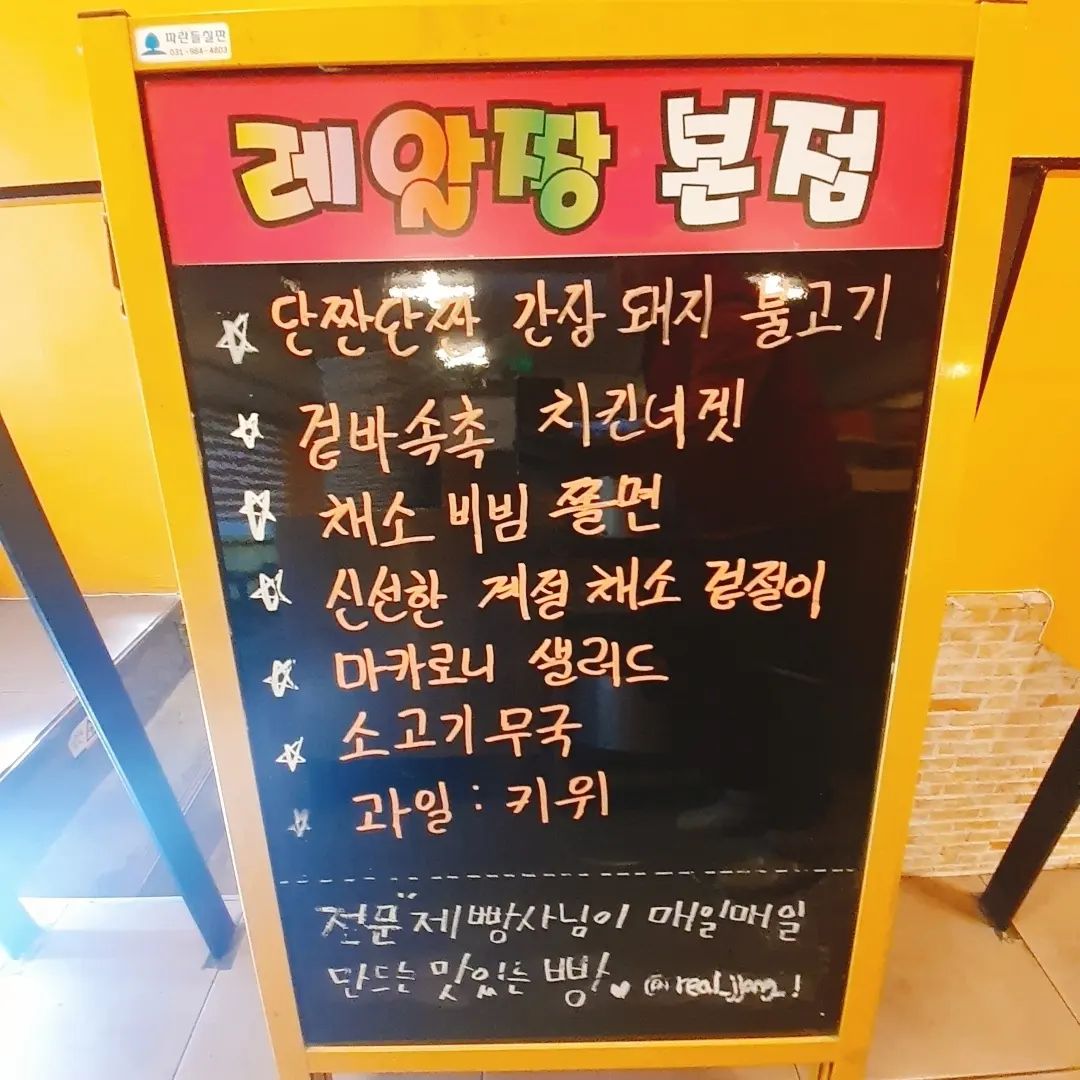 파란들실판
031-984-4803
레알짱 본점
☆ 단짠단짠 간장 돼지 불고기
☆ 겉바속촉 치킨너겟
☆ 채소 비빔 쫄면
☆ 신선한 계절 채소 겉절이
☆ 마카로니 샐러드
☆ 소고기무국
☆ 과일 : 키위
전문 제빵사님이 매일매일
만드는 맛있는 빵♥ @real_jjang_!